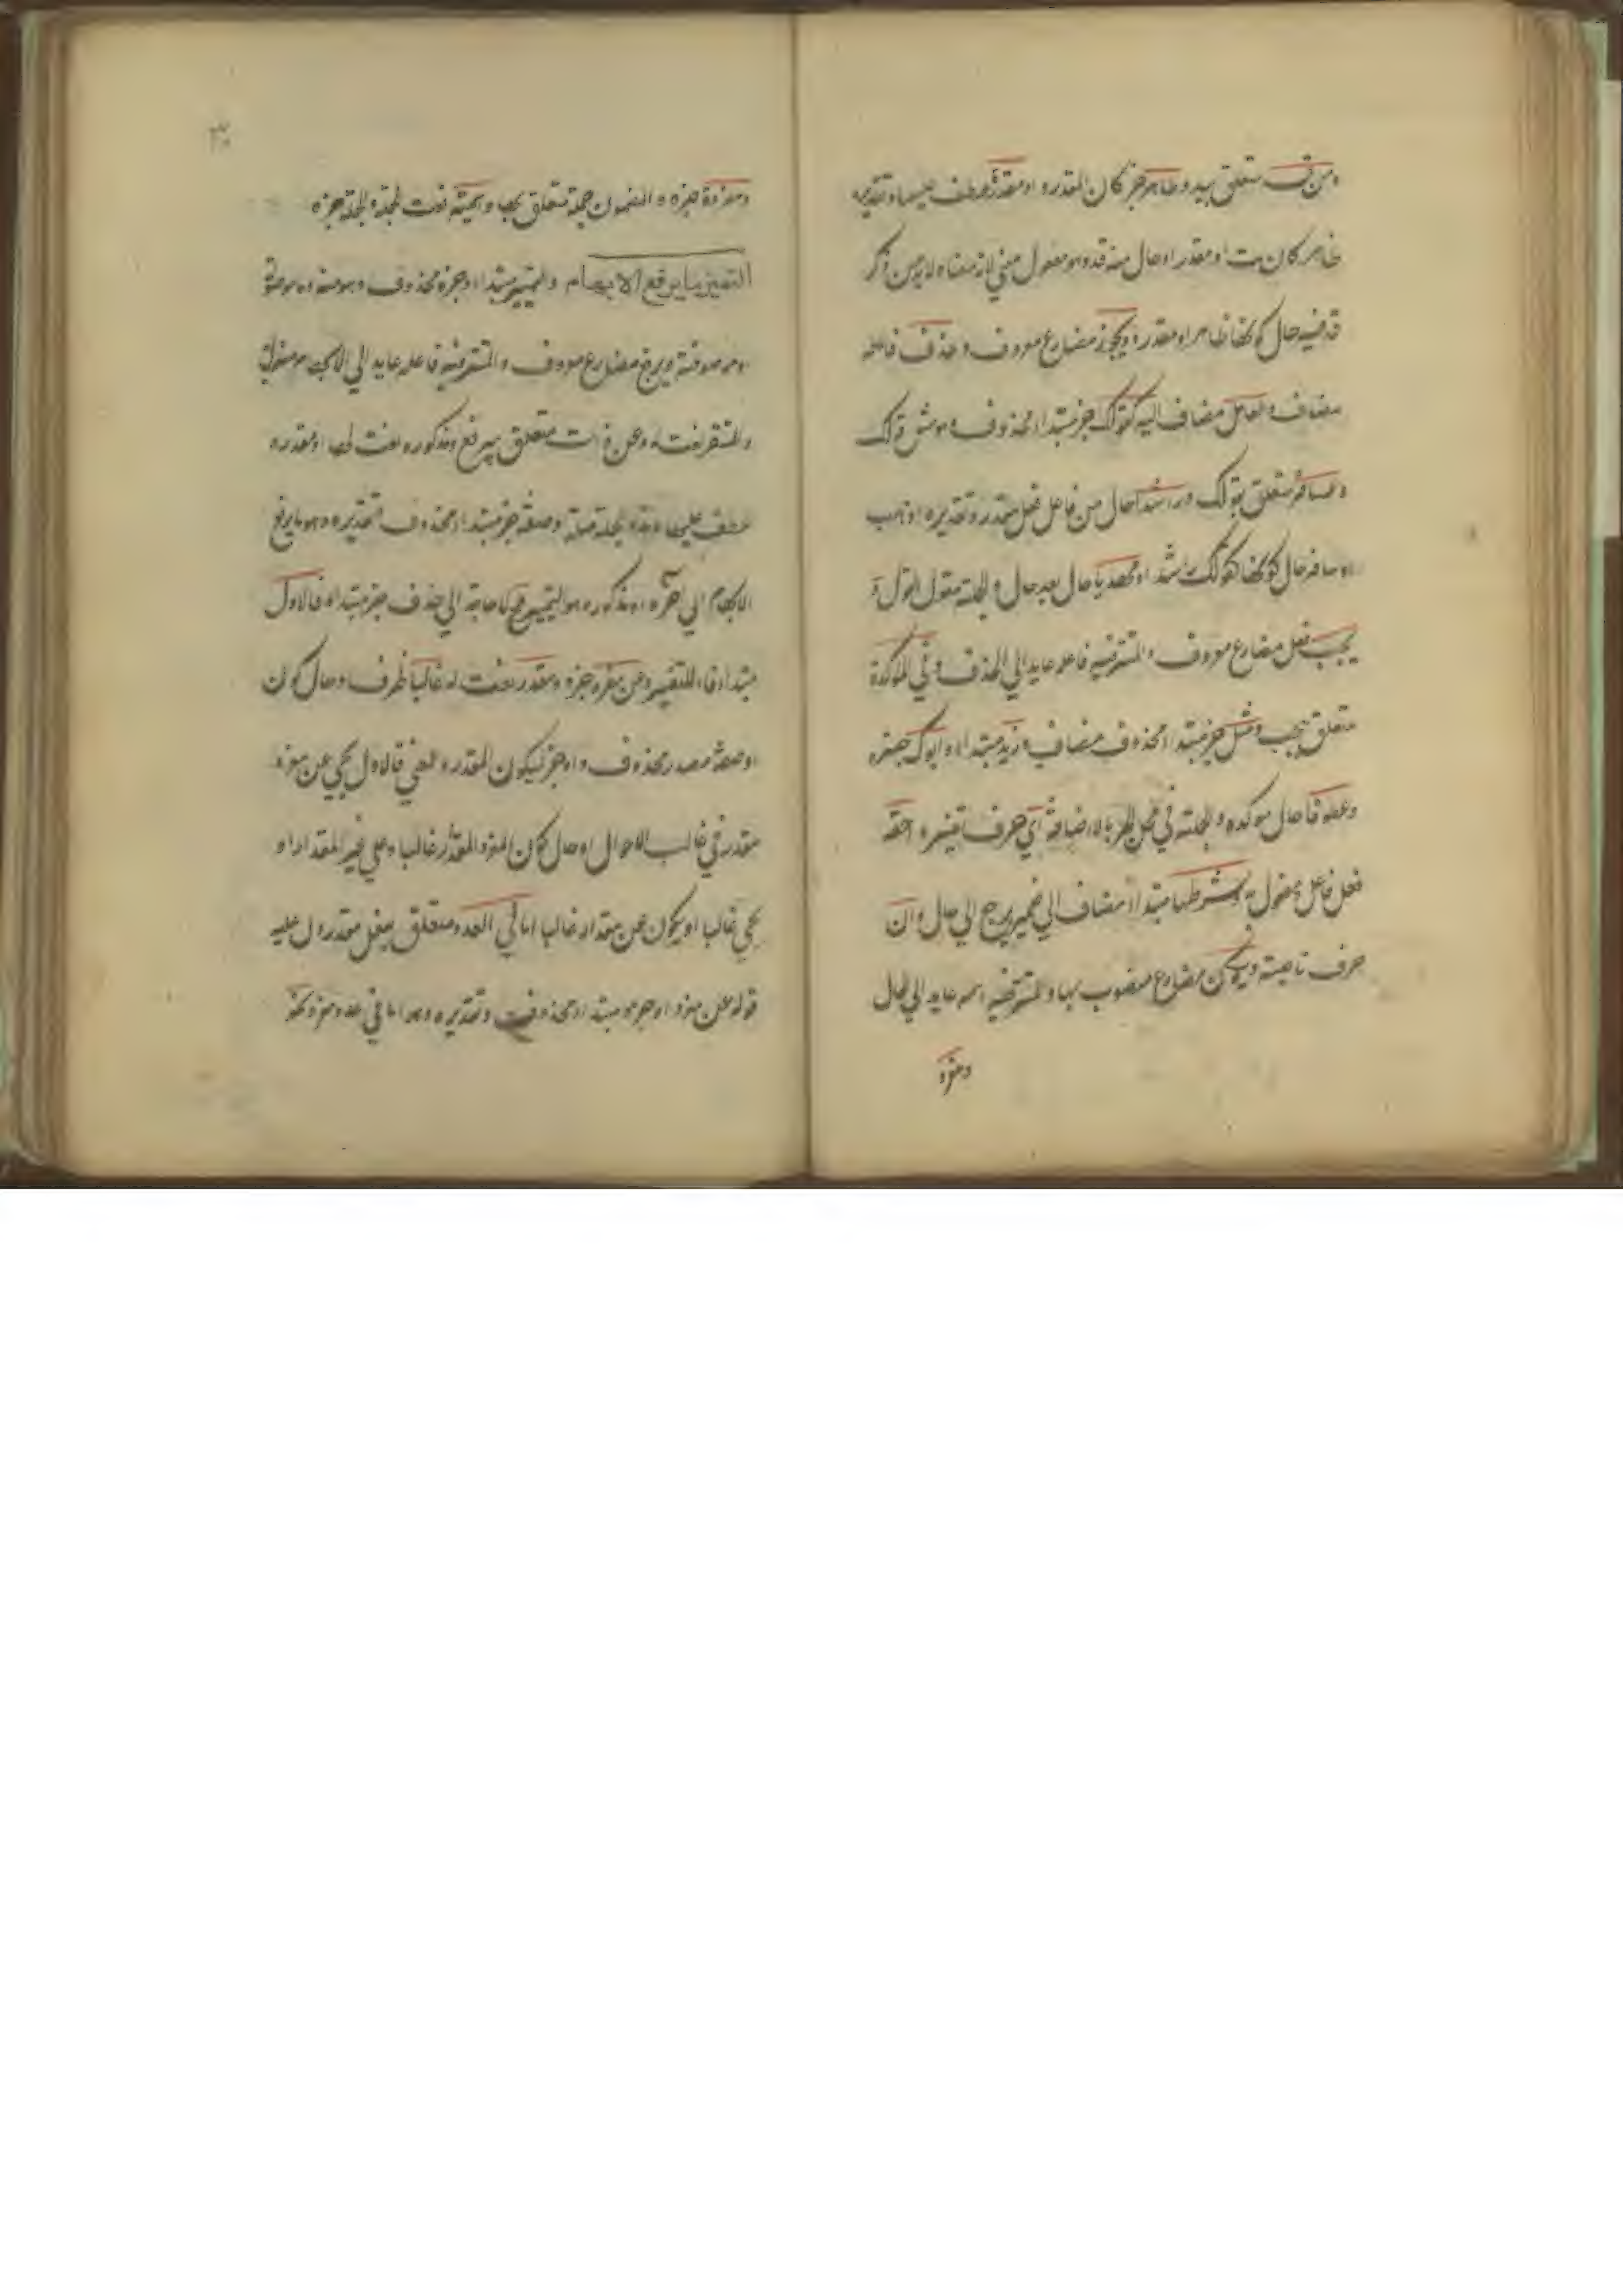 ومن قد متعلق بلابد وظاهرة خبر كان المقدرة او مقدرة عطف عليها وتقديره
ظاهر كان بت او مقدر او حال منه قد وهو مفعول معنى لان معناه لابد من ذكر
قد فيه حال كونها ظاهرا او مقدرة ويجوز مضارع معروف وحذف فاعله
مضاف والعامل مضاف اليه كقولك خبر مبتدأ محذوف وهو مثل قولك
وللمسافر متعلق بقولك وراشدا حال من فاعل فعل مقدر وتقديره اذهب
او سافر حال كونها كقولك راشدا ومهديا حال بعد حال والجملة مقول القول و
يجب فعل مضارع معروف والمستتر فيه فاعله عايد الى الحذف وفي المؤكدة
متعلق بيجب ومثل خبر مبتدأ محذوف مضاف وزيد مبتدأ وابوك خبره
وعطوفا حال مؤكدة والجملة في محل الجر بالاضافة اي حرف تفسير احقه
فعل فاعل ومفعول به وشرطها مبتدأ مضاف الى ضمير يرجع الى حال وان
حرف ناصبة ويكون مضارع منصوب بها والمستتر فيه اسمه عايد الى الحال
ومقررة
ومقررة خبره والمضمون جملة متعلق بها واسمية نعت لجملة والجملة خبره
التمييز ما يرفع الابهام والتمييز مبتدأ وخبره محذوف وهو منه وما موصولة
او موصوفة ويرفع مضارع معروف والمستتر فيه فاعله عايد الى ما الابهام مفعوله
والمستقر نعت له وعن ذات متعلق بيرفع ومذكورة نعت لها او مقدرة
عطف عليها وهذه الجملة صلة وصفة خبر مبتدأ محذوف تقديره وهو ما يرفع
الابهام الى آخره او مذكورة هو التمييز فلا حاجة الى حذف خبر مبتدأ فالاول
مبتدأ وفاء للتفسير وعن مفرد خبره ومقدار نعت له غالبا ظرف او حال كون
او صفة مصدر محذوف او خبر ليكون المقدرة المعنى فالاول يجي عن مفرد
مقدر في غالب الاحوال او حال كون المفرد المقدر غالبا وعلى غير المقدار او
يجي غالبا او يكون عن مقدار غالبا اما في العدد متعلق بفعل مقدر دل عليه
قوله عن مفرد او خبر مبتدأ محذوف وتقديره وهو اما في عدد ونحو كذ